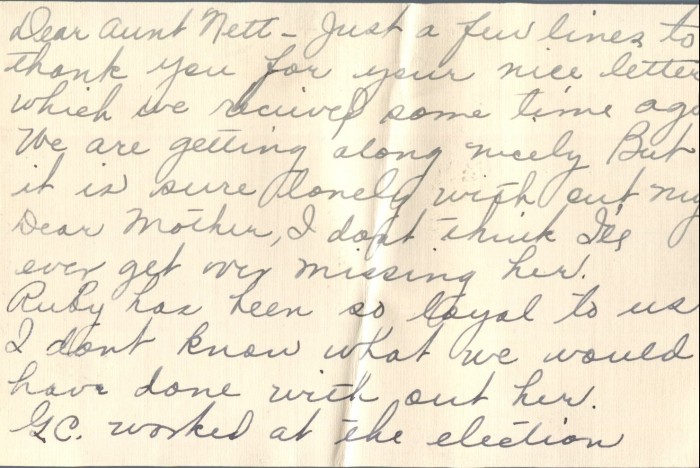 Dear Aunt Nett - Just a few lines to
thank you for your nice letter
which we recived some time ago
We are getting along nicely But
it is sure lonely with out my
Dear Mother, I dont think I'll
ever get over missing her.
Ruby has been so loyal to us
I dont know what we would
have done with out her.
G.C. worked at the election